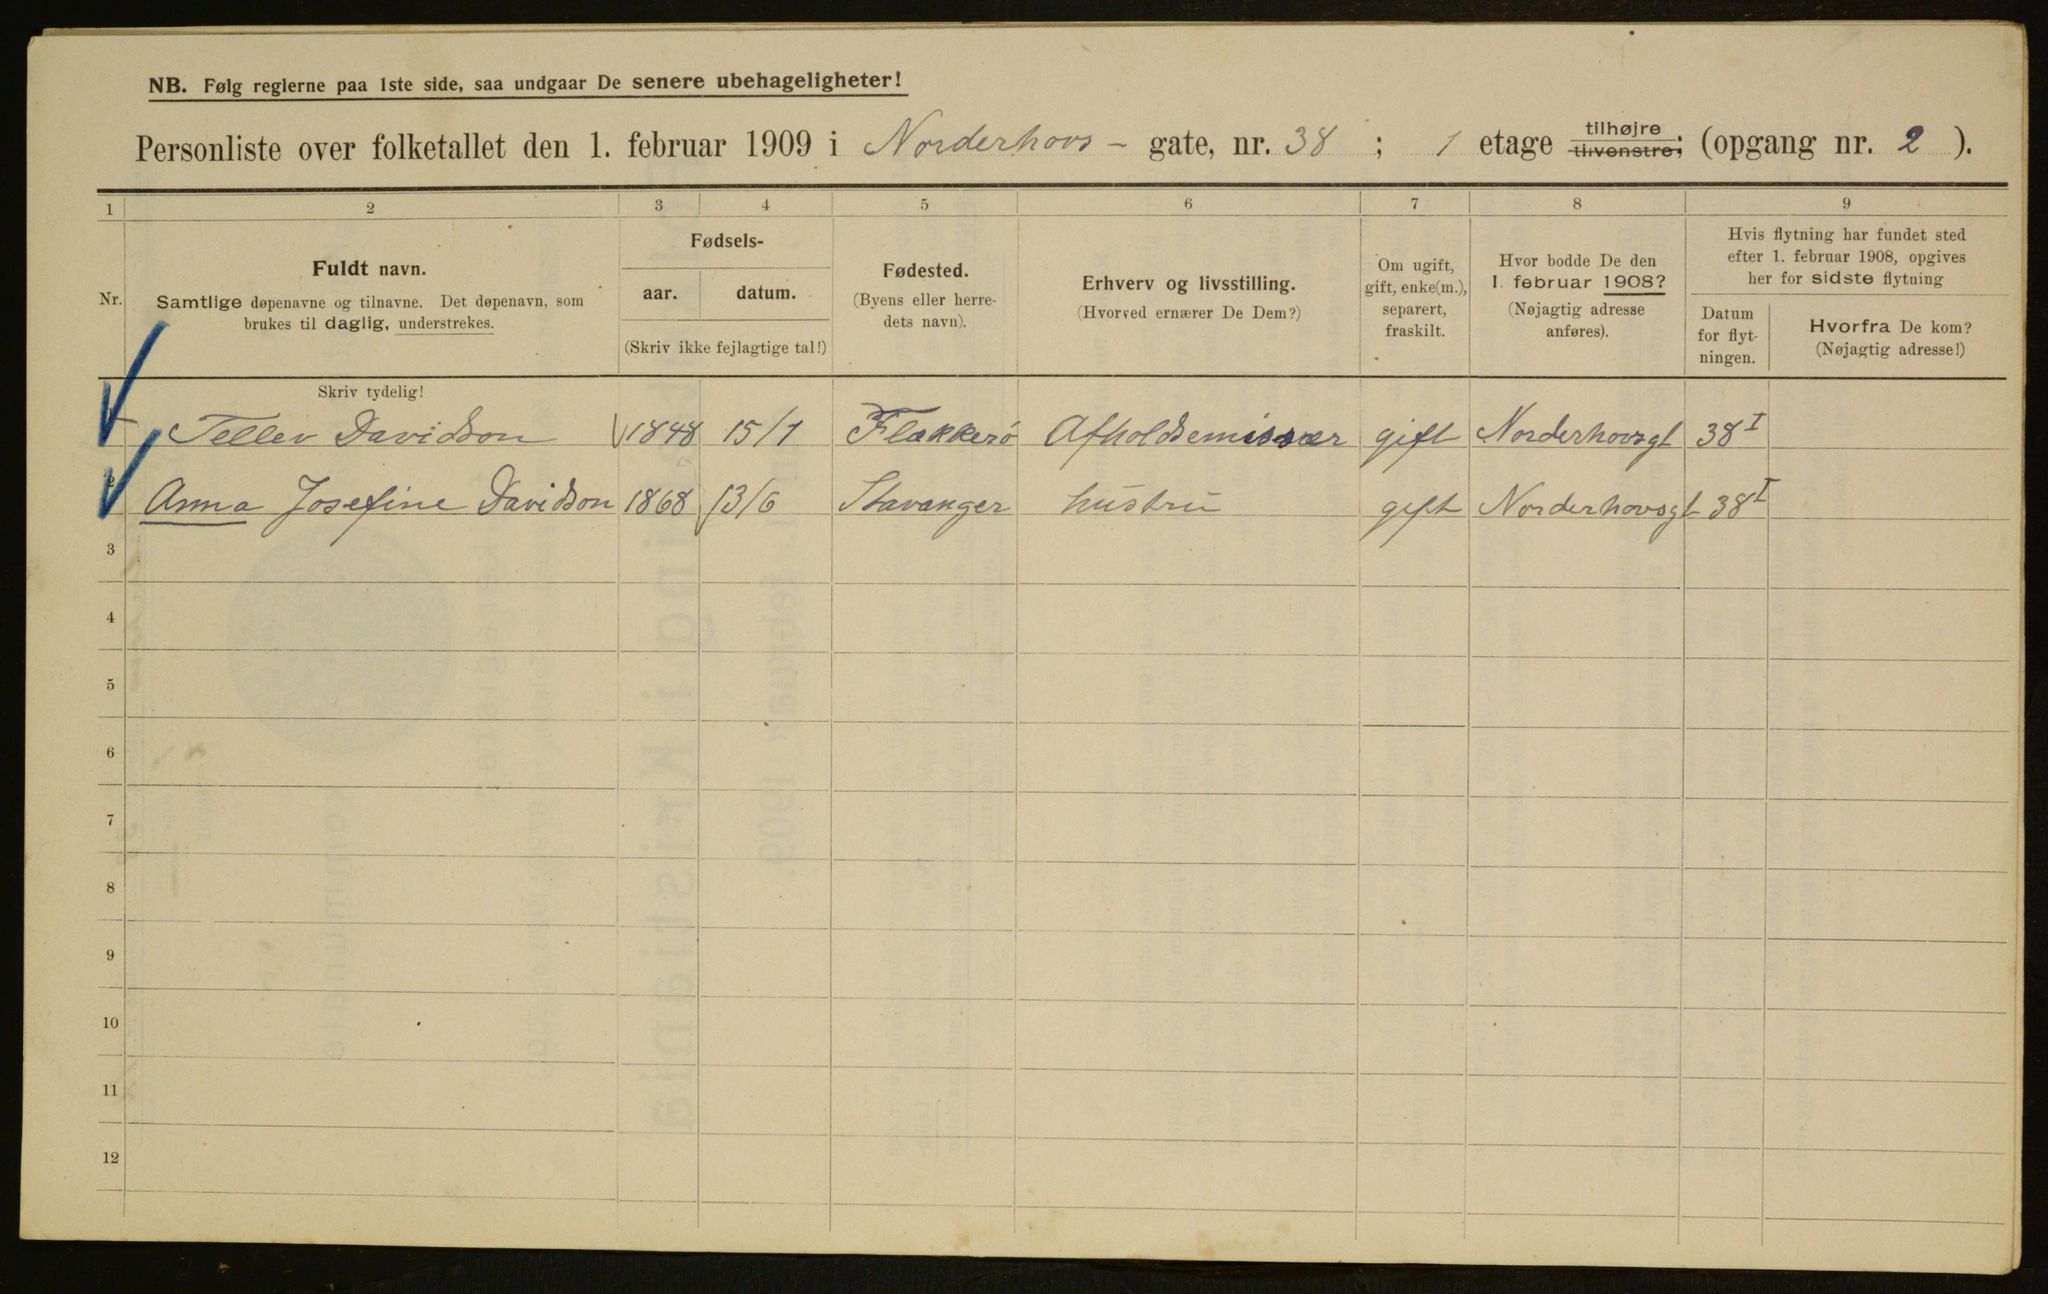 NB. Følg reglerne paa 1ste side, saa undgaar De senere ubehageligheter!
Personliste over folketallet den 1. februar 1909 i Norderhovs- gate, nr. 38 ; 1 etage tilhøjre tilvenstre; (opgang nr. 2 ).
1 2 3 4 5 6 7 8 9
Nr.
Fuldt navn.
Samtlige døpenavne og tilnavne. Det døpenavn, som
brukes til daglig, understrekes.
Fødsels-
aar. datum.
(Skriv ikke fejlagtige tal!)
Fødested.
(Byens eller herre-
dets navn).
Erhverv og livsstilling.
(Hvorved ernærer De Dem?)
Om ugift,
gift, enke(m.),
separert,
fraskilt.
Hvor bodde De den
1. februar 1908?
(Nøjagtig adresse
anføres).
Hvis flytning har fundet sted
efter 1. februar 1908, opgives
her for sidste flytning
Datum
for flyt-
ningen.
Hvorfra De kom?
(Nøjagtig adresse!)
Skriv tydelig!
Tellev Davidson 1848 15/1 Flækkerö Afholdsemissær gift Norderhovsgt 38 I
2 Anna Josefine Davidson 1868 13/6 Stavanger hustru gift Norderhovsgt 38 I
3
4
5
6
7
8
9
10
11
12